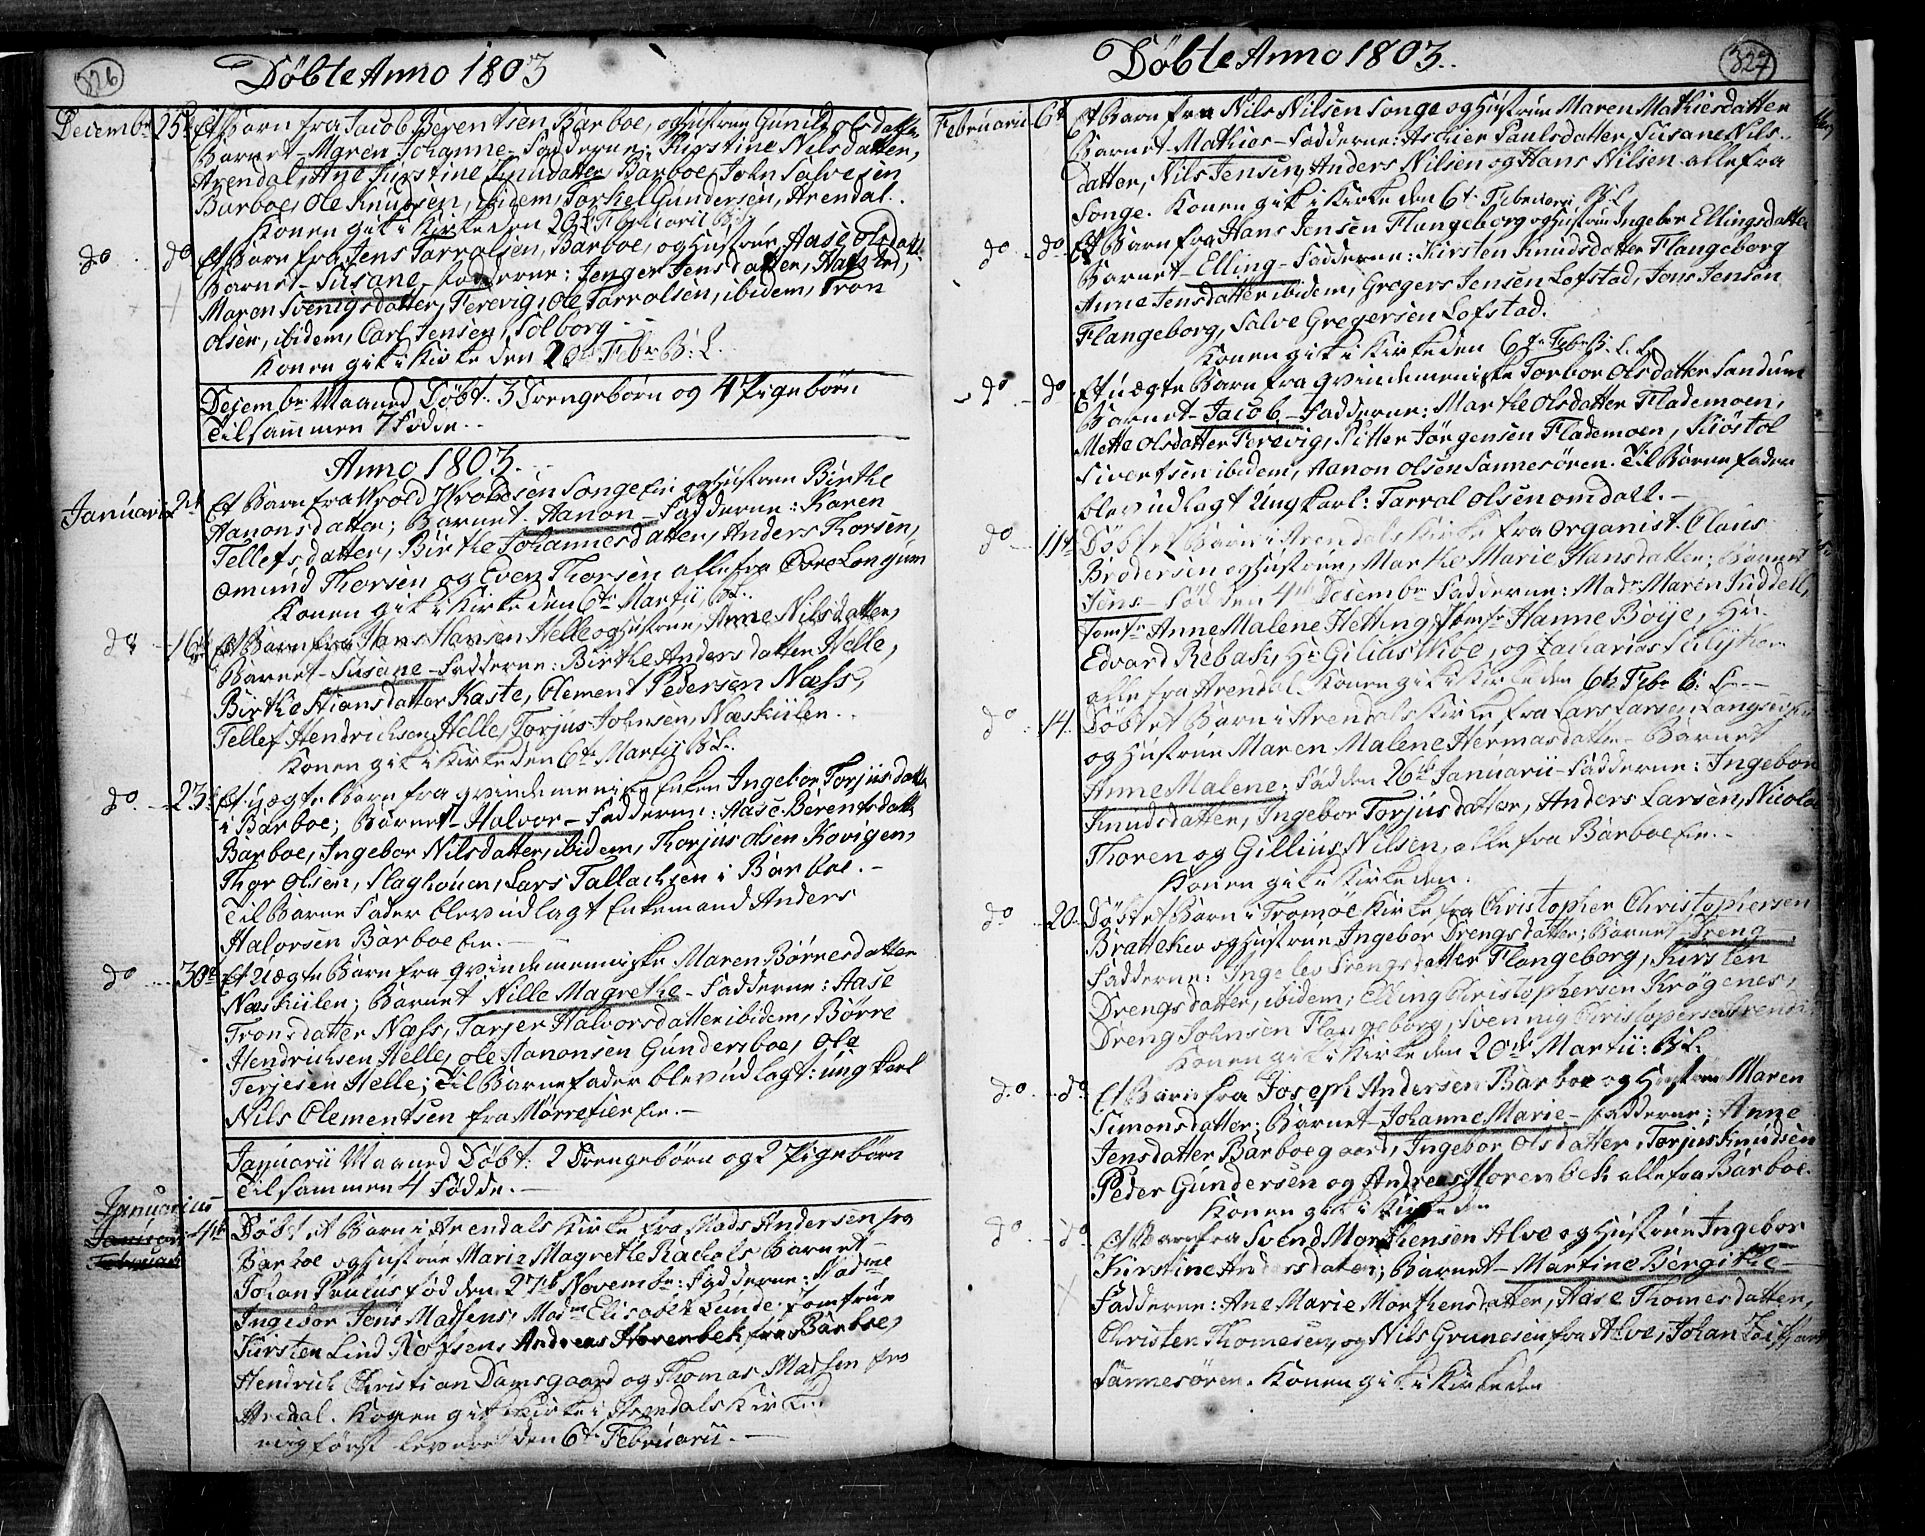 326
Döbte Anno 1803
Decembr 25de Et Barn fra Jacob Berentsen Barboe, og Hustrue Gunild Olsdatter
Barnet - Maren Johanne - Fadderne: Kirstine Nilsdatter,
Arendal, Ane Kirstine Knudatter, Barboe, John Salvesen
Barboe, Ole Knudsen, ibidem, Torkel Gundersen, Arendal.
Konen gik i Kirke den 20de Februarii
do do Et Barn fra Jens Tarralsen, Barboe, og Hustrue, Aase Olsdatt:
Barnet - Susane, Fadderne: Jenger Jensdatter, Hafsted,
Maren Svenigsdatter, Ferevig, Ole Tarralsen, ibidem, Tron
Olsen, ibidem, Carl Jensen, Solborg.
Konen gik i Kirke den 20de Febr B: L.
Decembr Maaned Döbt: 3 Drengebörn og 4 Pigebörn
Tilsammen 7 Födde.
Anno 1803.
Januarii 2de Et Barn fra Wrold Wroldsen Songe Eie og Hustrue Birthe
Aanonsdatter; Barnet - Aanon - Fadderne: Karen
Tellefsdatter, Birthe Johannesdatter, Anders Thorsen,
Omund Thorsen og Even Thorsen alle fra Övre Longum
Konen gik i Kirke den 6te Martii, B.L.
do 16de Et Barn fra Hans Hansen Helle og Hustrue, Anne Nilsdatter,
Barnet - Susane - Fadderne: Birthe Andersdatter Helle,
Birthe Stiansdatter Kaste, Clement Pedersen Næss,
Tellef Hendrichsen Helle, Torjus Johnsen, Næskiilen.
Konen gik i Kirke den 6te Martii B L.
do 23de Et uægte Barn fra Qvindemeniske Enken Ingebor Torjusdatter
i Barboe; Barnet - Halvor - Fadderne: Aase Berentsdatt
Barboe, Ingebor Nilsdatter, ibidem, Thorjus Olsen Kovigen,
Thor Olsen, Slaghouen, Lars Tallachsen i Barboe.
Til Barne Fader blev udlagt Enkemand Anders
Halvorsen Barboe Eie.
do 30de Et Uægte Barn fra Qvindemenniske Maren Börresdatter
Næskiilen; Barnet Nille Magrethe - Fadderne: Aase
Tronsdatter Næss, Tarjer Halvorsdatter ibidem, Börre
Hendrichsen Helle, Ole Aanonsen Gundersboe, Ole
Terjesen Helle; Til Barnefader blev udlagt: ung Karl
Nils Clementsen fra Mörrefier Eie.
Januarii Maaned Döbt: 2 Drengebörn og 2 Pigebörn
Tilsammen 4 Födde.
Januarius
4de Döbt et Barn i Arendals Kirke fra Mads Andersen fra
Barboe og Hustrue Maria Magrethe Barnet
Johan Paulus född den 27de Novembr: Fadderne: Madme
Ingebor Jens Madsens, Madme Elisabeth Lunde, Jomfrue
Kirsten Lind Andreas Horenbek fra Barboe,
Hendrich Christian Damsgaard og Thomas Madsen fra
Aredal. Konen gik i Kirke i Arendals Kirke
den 6te Februarii.
327
Döbte Anno 1803.
Februarii 6te Et Barn fra Nils Nilsen Songe og Hustrue Maren Mathiesdatter
Barnet - Mathies - Fadderne: Aslier Paulsdatter, Susane Nils-
datter, Nils Jensen, Anders Nilsen og Hans Nilsen - alle fra
Songe. Konen gik i Kirke den 6te Februarii B L
do do Et Barn fra Hans Jensen Flangeborg og Hustrue Ingebor Ellingsdatter
Barnet - Elling - Fadderne: Kirsten Knudsdatter Flangeborg
Anne Jensdatter ibidem, Gregers Jensen Lofstad, Jens Jensen
Flangeborg, Salve Gregersen Lofstad.
Konen gik i Kirke den 6te Febr B. L.
do do Et uægte Barn fra Qvindemeniske Torbor Olsdatter Sandum
Barnet - Jacob - Fadderne: Marthe Olsdatter Flademoen,
Mette Olsdatter Ferevig, Pitter Jörgensen Flademoen, Siöstol
Sivertsen ibidem, Aanon Olsen Sannesören. Til Barne Fader
blev udlagt Ung Karl: Tarral Olsen Omdall.
do 11te Döbt et Barn i Arendals Kirke fra Organist. Claus
Brodersen og Hustrue, Marthe Marie Hansdatter; Barnet
Jens - Född den 4de Decembr Fadderne: Madme Maren
Jomfr Anne Malene Hetting, Jomfr Hanne Böije, Hr.
Edvard Hr Gilius og Zacharias
alle fra Arendal. Konen gik i Kirke den 6te Febr B: L.
do 14. Döbt et Barn i Arendals Kirke fra Lars Larsen
og Hustrue Maren Malene Hermansdatter - Barnet
Anne Malene; Född den 26de Januarii - Fadderne: Ingebor
Knudsdatter, Ingebor Torjusdatter, Anders Larsen, Nicolai
Thoren og Gillius Nilsen, alle fra Barboe Eie.
Konen gik i Kirke den.
do 20. Döbt et Barn i Tromöe Kirke fra Christopher Christophersen
Brattekiev og Hustrue Ingebor Drengsdatter; Barnet - Dreng -
Fadderne: Ingelev Drengsdatter Flangeborg, Kirsten
Drengsdatter, ibidem, Elling Christophersen Krögenes,
Dreng Johnsen Flangeborg, Svennig Christophersen
Konen gik i Kirke den 20de Martii: B L.
do do Et Barn fra Joseph Andersen Barboe og Hustrue Maren
Simonsdatter; Barnet - Johanne Marie - Fadderne: Anne
Jensdatter Barboegaard, Ingebor Olsdatter, Torjus Knudsen
Peder Gundersen og Andreas Horembek alle fra Barboe.
Konen gik i Kirke den
do do Et Barn fra Svend Morthensen Alve og Hustrue Ingebor
Kirstine Andersdatter; Barnet - Martine Bergithe -
Fadderne: Ane Marie Morthensdatter, Aase Thomesdatter,
Christen Thomesen, og Nils Grunesen fra Alve, Johan
Sannesören. Konen gik i Kirke den